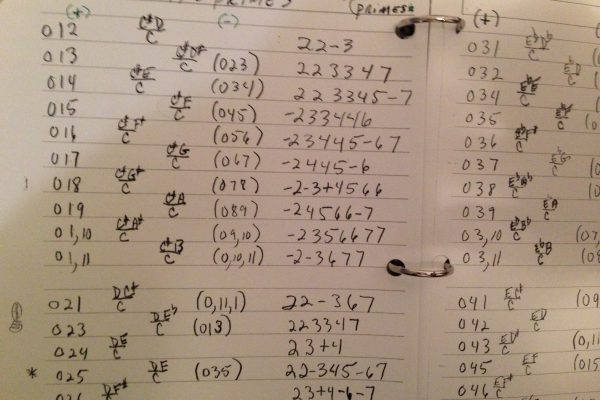 (+) (-) (PRIMES
012 C#D/C 22-3
013 C#D#/C (023) 223347
014 C#E/C (034) 223345-7
015 C#F/C (045) -233446
016 C#F#/C (056) -23445-67
017 C#G/C (067) -2445-6
018 C#G#/C (078) -2-3+4566
019 C#A/C (089) -24566-7
01,10 C#A#/C (09,10) -2356677
01,11 C#B/C (0,10,11) -2-3677
021 DC#/C (0,11,1) 22-367
023 DEb/C (013) 223347
024 DE/C 23+4
* 025 DF/C (035) 22-345-67
026 DF#/C 23+4-6-7
(+)
031 EbDb/C
032 EbD/C
034 EbE/C
035 EbF/C
036 EbF#/C
037 EbG/C
038 EbAb/C
039 EbA/C
03,10 EbBb/C (07,
03,11 EbB/C (08
041 EC#/C (09
042 ED/C
043 ED#/C (0,11
045 EF/C (015
046 EF#/C